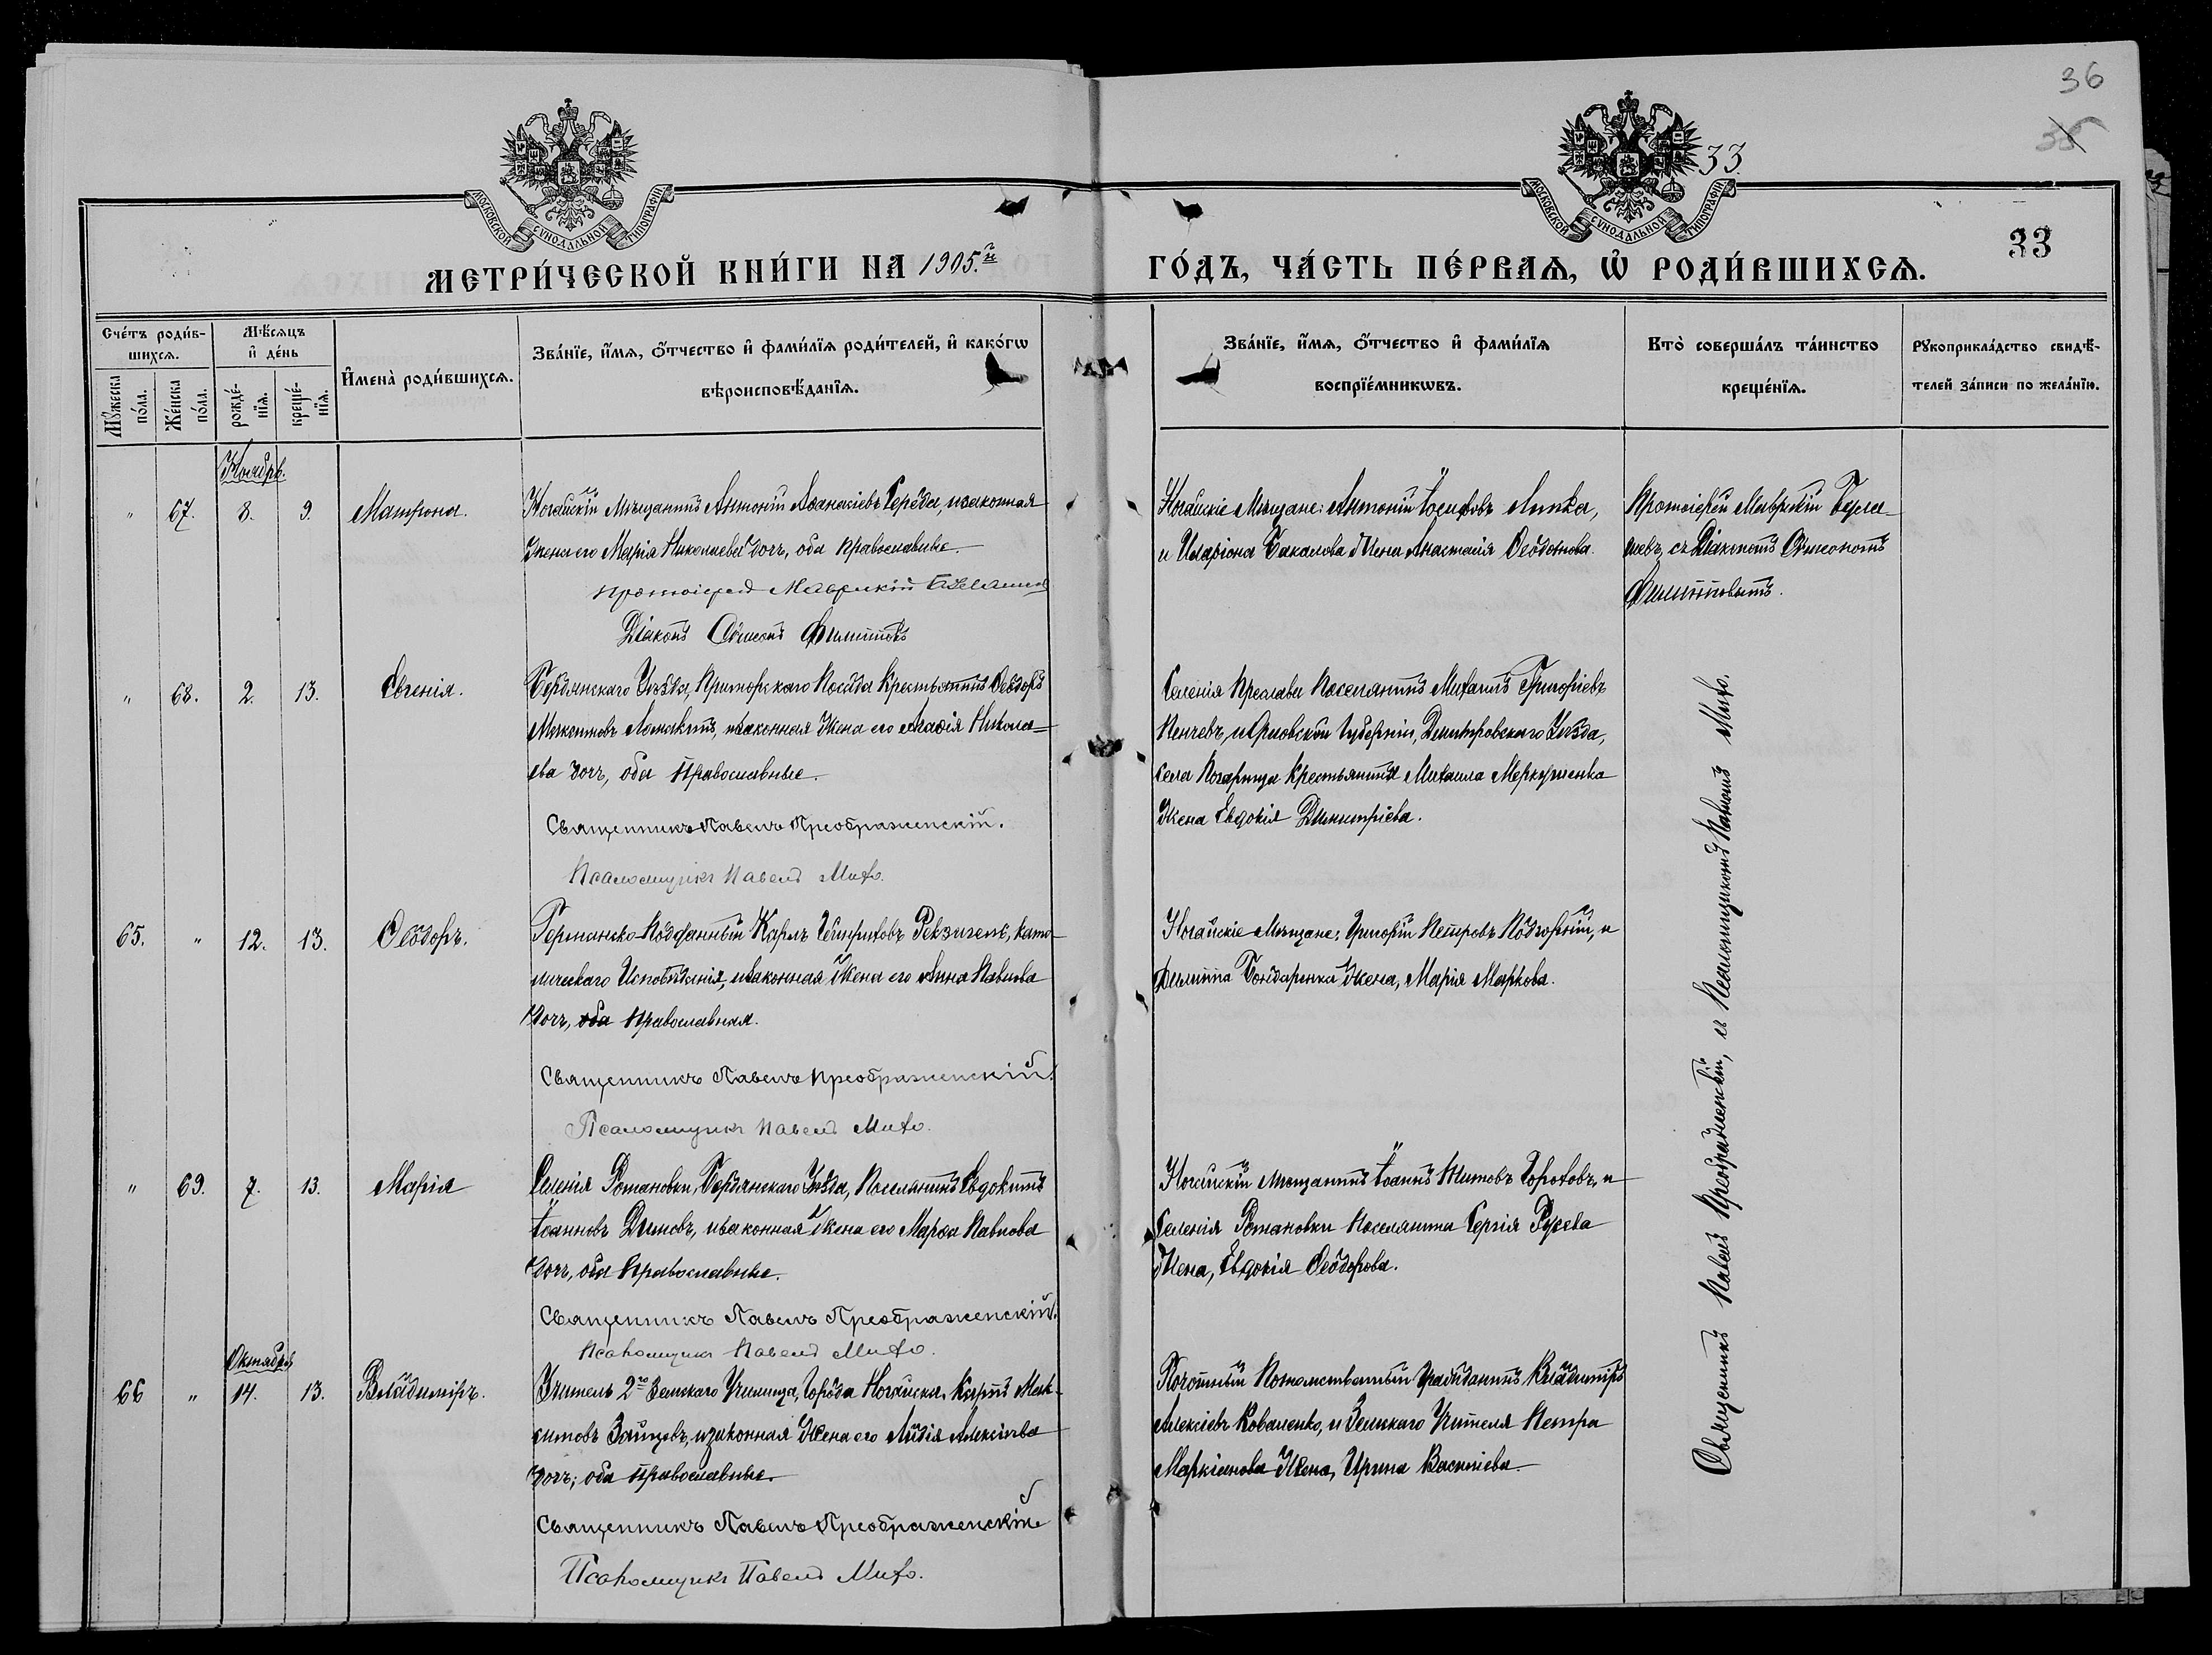 36
35
33.
МОСКОВСКОЙ СѴНОДАЛЬНОЙ ТИПОГРАФІИ
МОСКОВСКОЙ СѴНОДАЛЬНОЙ ТИПОГРАФІИ
МЕТРИ́ЧЕСКОЙ КНИ́ГИ НА 1905.й
ГО́ДЪ, ЧА́СТЬ ПЕ́РВАѦ, Ѡ РОДИ́ВШИХСѦ.
33
Сче́тъ роди́в-
шихсѧ.
Мꙋ́жеска по́ла.
Же́нска по́ла.
Мѣ́сѧцъ и҆ де́нь
рожде́-нїѧ.
креще́-нїѧ.
И҆мена̀ роди́вшихсѧ.
Зва́нїе, и҆́мѧ, ѻ҆́тчество и҆ фами́лїѧ роди́телей, и҆ како́гѡ
вѣроисповѣ́данїѧ.
Зва́нїе, и҆́мѧ, ѻ҆́тчество и҆ фами́лїѧ
воспрїе́мникѡвъ.
Кто̀ соверша́лъ та́инство
креще́нїѧ.
Рꙋкоприкла́дство свидѣ́-
телей за́писи по жела́нїю.
Ноябрь.
" 67. 8. 9. Матрона.
Ногайскій Мѣщанинъ Антоній Аѳанасіевъ Середа, изаконная
Жена его Марія Николаева дочь, оба Православные.
Протоіерей Маврикій
Діаконъ Сѵмеонъ Филипповъ
Ногайскіе Мѣщане: Антоній Іосифовъ Липка,
и Иларіона Бакалова Жена Анастасія Ѳеодотова.
Протоіерей Маврикій
съ Діакономъ Сѵмеономъ
Филипповымъ.
" 68. 2. 13. Евгенія.
Бердянскаго Уѣзда, Приморскаго Посада Крестьянинъ Ѳеодоръ
Ломакинъ, изаконная Жена его Агаѳія Никола=
ева дочь, оба Православные.
Священникъ Павелъ Преображенскій.
Псаломщикъ Павелъ Михо.
Селенія Преславы Поселянинъ Михаилъ Григоріевъ
Пенчевъ, и Орловской Губерніи, Дмитровскаго Уѣзда,
Села Крестьянина Михаила
Жена Евдокія Димитріева.
65. " 12. 13. Ѳеодоръ.
Германско-Подданный Карлъ Гейнриховъ като-
лическаго Исповѣданія, изаконная Жена его Анна Павлова
дочь, оба Православная.
Священникъ Павелъ Преображенскій.
Псаломщикъ Павелъ Михо.
Ногайскіе Мѣщане; Григорій Петровъ Подгорный, и
Филиппа Бондаренка Жена, Марія Маркова.
" 69. 7. 13. Марія
Селенія Романовки, Бердянскаго Уѣзда, Поселянинъ Евдокимъ
Іоанновъ Димовъ, изаконная Жена его Марѳа Павлова
дочь, оба Православные.
Священникъ Павелъ Преображенскій.
Псаломщикъ Павелъ Михо.
Ногайскій мѣщанинъ Іоаннъ Титовъ Гороховъ, и
Селенія Романовки Поселянина Сергія Русева
Жена, Евдокія Ѳеодорова.
Октябрь
66 " 14. 13. Владиміръ.
Учитель 2го Земскаго Училища, города Ногайска, Карпъ Мак-
симовъ Зайцевъ, изаконная Жена его Лидія Алексіева
дочь; оба Православные.
Священникъ Павелъ Преображенскій
Псаломщикъ Павелъ Михо.
Почотный Потомственный Гражданинъ Владиміръ
Алексіевъ Коваленко, и Земскаго Учителя Петра
Маркіанова Жена, Ирина Василіева.
Священникъ Павелъ Преображенскій, съ Псаломщикомъ Павломъ Михо.